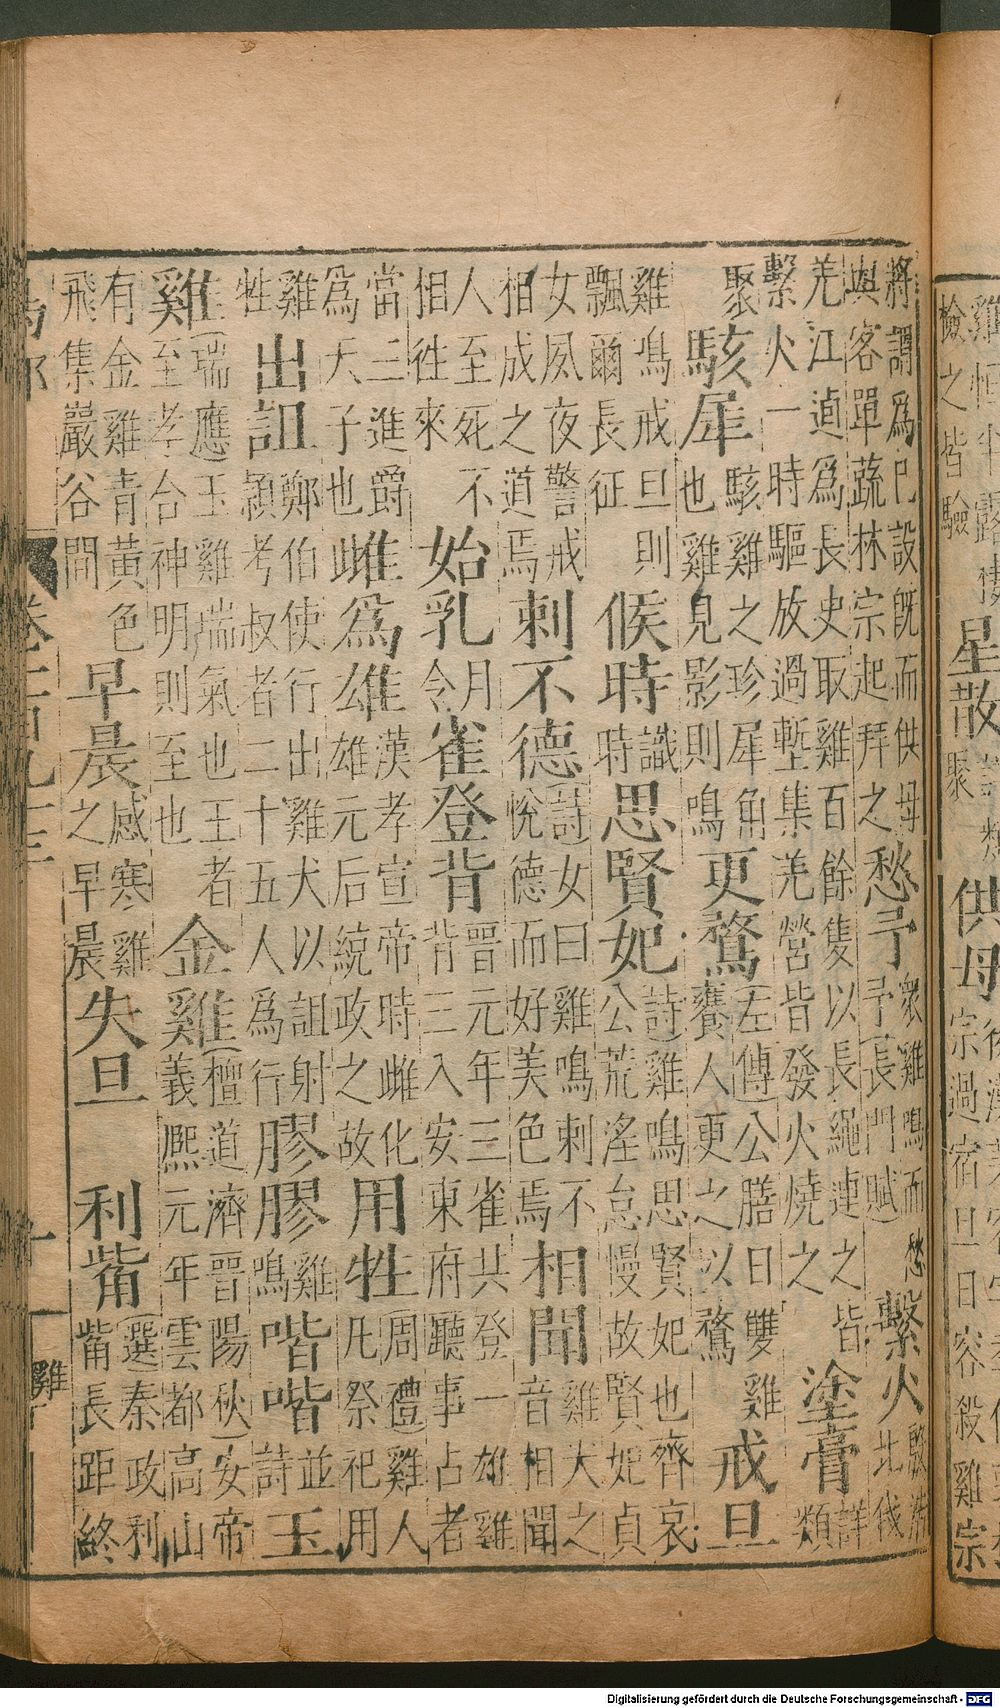 星散
供母
宗過宿旦日容殺雞宗
將謂為己設既而供母與客單蔬林宗起拜之愁予衆雞鳴而愁予長門賦繫火殷浩北伐
羌江逌為長史取雞百餘隻以長繩連之皆繫火一時驅放過塹集羌營皆發火燒之塗膏詳類
聚駭犀駭雞之珍犀角也雞見影則鳴更鶩左傳公膳日雙雞饔人更之以鶩戒旦
雞鳴戒旦則飄爾長征候時識時思賢妃詩雞鳴思賢妃也齊哀公荒淫怠慢故賢妃貞
女夙夜警戒相成之道焉刺不德詩女曰雞鳴刺不悅德而好美色焉相聞雞犬之音相聞
人至死不相徃來始乳月令雀登背晉元年三雀共登一雄雞背三入安東府聽事占者
當三進爵為天子也雌為雄漢孝宣帝時雌化雄元后統政之故用牲周禮雞人凡祭祀用
雞牲出詛鄭伯使行出雞犬以詛射頴考叔者二十五人為行膠膠雞鳴喈喈並詩玉
雞瑞應玉雞瑞氣也王者至孝台神明則至也金雞檀道濟晉陽秋安帝義熙元年雲都高山
有金雞青黃色飛集巖谷間早晨感寒雞之早晨失旦利觜選秦政利觜長距終
雞
Digitalisierung gefördert durch die Deutsche Forschungsgemeinschaft - DFG